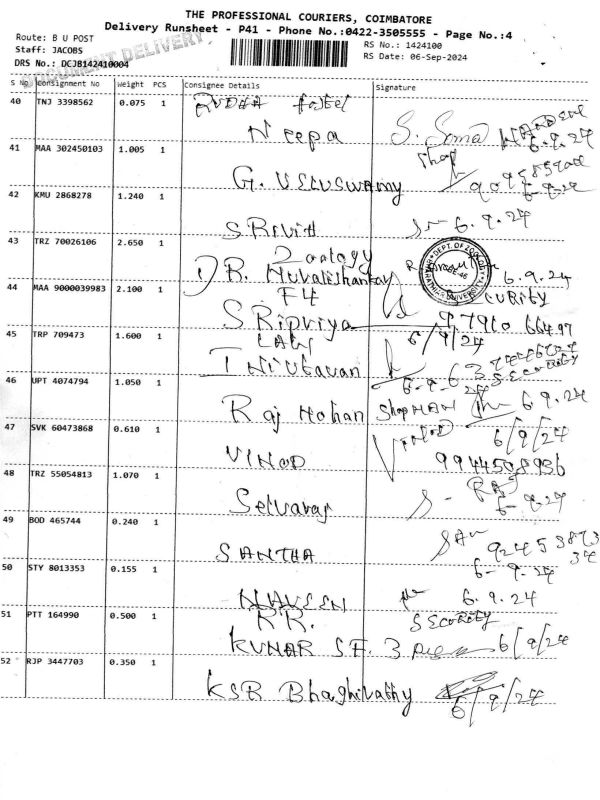 THE PROFESSIONAL COURIERS, COIMBATORE
Delivery Runsheet - P41 - Phone No.:0422-3505555 - Page No.:4
Route: B U POST
RS No.: 1424100
Staff: JACOBS
RS Date: 06-Sep-2024
DRS No.: DCJB142410004
DOCUMENT DELIVERY
S No Consignment No Weight PCS Consignee Details Signature
40 TNJ 3398562 0.075 1
Neepa 6.9.24
41 MAA 302450103 1.005 1
G. VELUSWAMY
42 KMU 2868278 1.240 1
6.9.24
43 TRZ 70026106 2.650 1 Zoology
DEPT. OF ZOOLOGY
6.9.24
44 MAA 9000039983 2.100 1 F4
SRipriya
6/9/24
45 TRP 709473 1.600 1 LAW
SECURITY
46 UPT 4074794 1.050 1
Raj Mohan ShopMAN 6.9.24
47 SVK 60473868 0.610 1 VINOD 6/9/24
VINOD 9944508936
48 TRZ 55054813 1.070 1
Selvaraj 6-9-24
49 BOD 465744 0.240 1
SANTHA
50 STY 8013353 0.155 1 6-9.24
NAVEEN 6.9.24
51 PTT 164990 0.500 1 R.R. Security
KUMAR 6/9/24
52 RJP 3447703 0.350 1
KSR Bhaghilathy 6/9/24